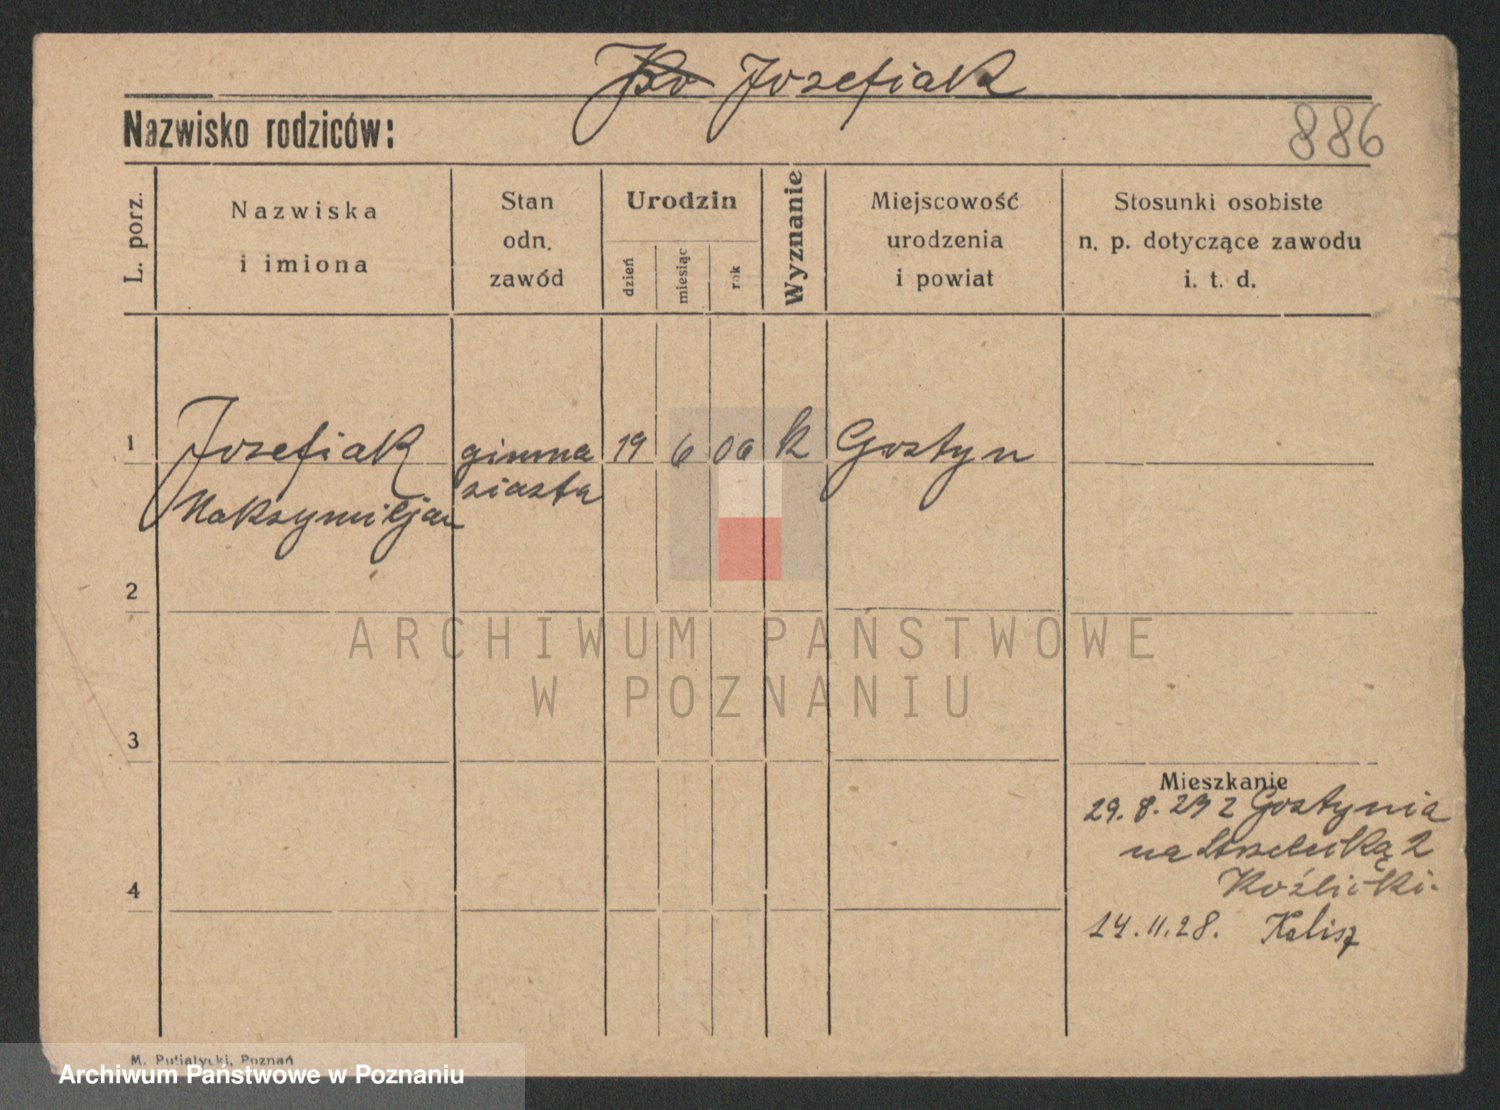 Jozefiak
Nazwisko rodziców:
886
L. porz.
Nazwiska
i imiona
Stan
odn.
zawód
Urodzin
dzień
miesiąc
rok
Wyznanie
Miejscowość
urodzenia
i powiat
Stosunki osobiste
n. p. dotyczące zawodu
i. t. d.
1
Jozefiak
Maksymiljan
gimna
ziasta
19
6
06
k
Gostyn
2
ARCHIWUM PAŃSTWOWE
W POZNANIU
3
Mieszkanie
29. 8. 23 z Gostynia
na Strzelecką 2
Koźlicki.
4
14. 11. 28. Kalisz
M. Putiatycki, Poznań
Archiwum Państwowe w Poznaniu